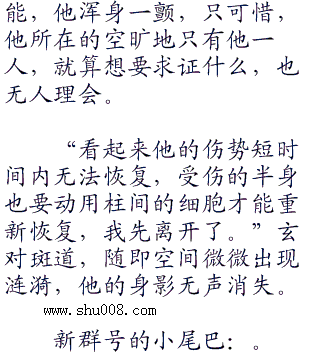 能，他浑身一颤，只可惜，
他所在的空旷地只有他一
人，就算想要求证什么，也
无人理会。
“看起来他的伤势短时
间内无法恢复，受伤的半身
也要动用柱间的细胞才能重
新恢复，我先离开了。”玄
对斑道，随即空间微微出现
涟漪，他的身影无声消失。
www.shu008.com
新群号的小尾巴：。